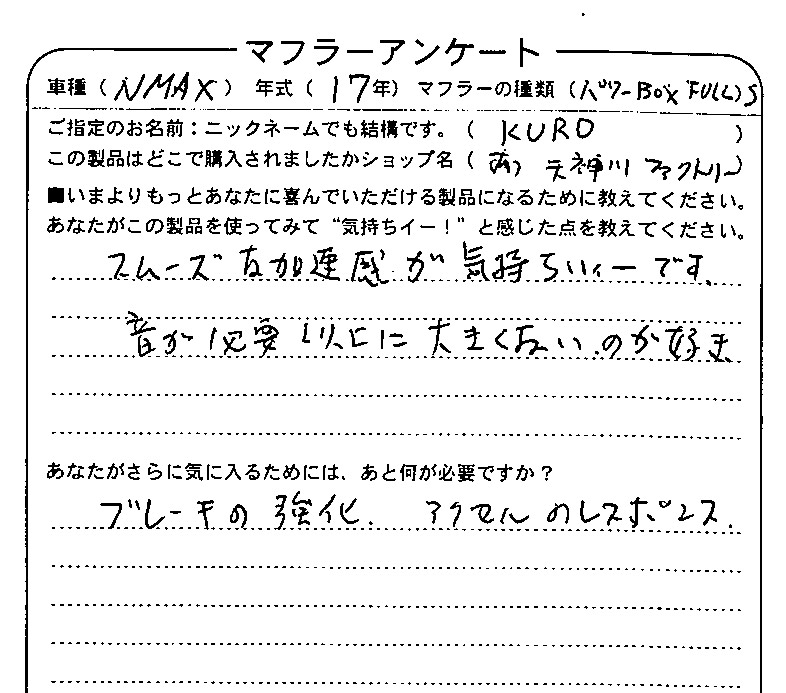 マフラーアンケート
車種（NMAX）年式（17年）マフラーの種類（パワーBOX FULL）S
ご指定のお名前：ニックネームでも結構です。（KURO）
この製品はどこで購入されましたかショップ名（天神川ファクトリー）
■いまよりもっとあなたに喜んでいただける製品になるために教えてください。
あなたがこの製品を使ってみて“気持ちイー！”と感じた点を教えてください。
スムーズな加速感が気持ちいィーです。
音が必要以上に大きくないのが好き
あなたがさらに気に入るためには、あと何が必要ですか？
ブレーキの強化、アクセルのレスポンス．